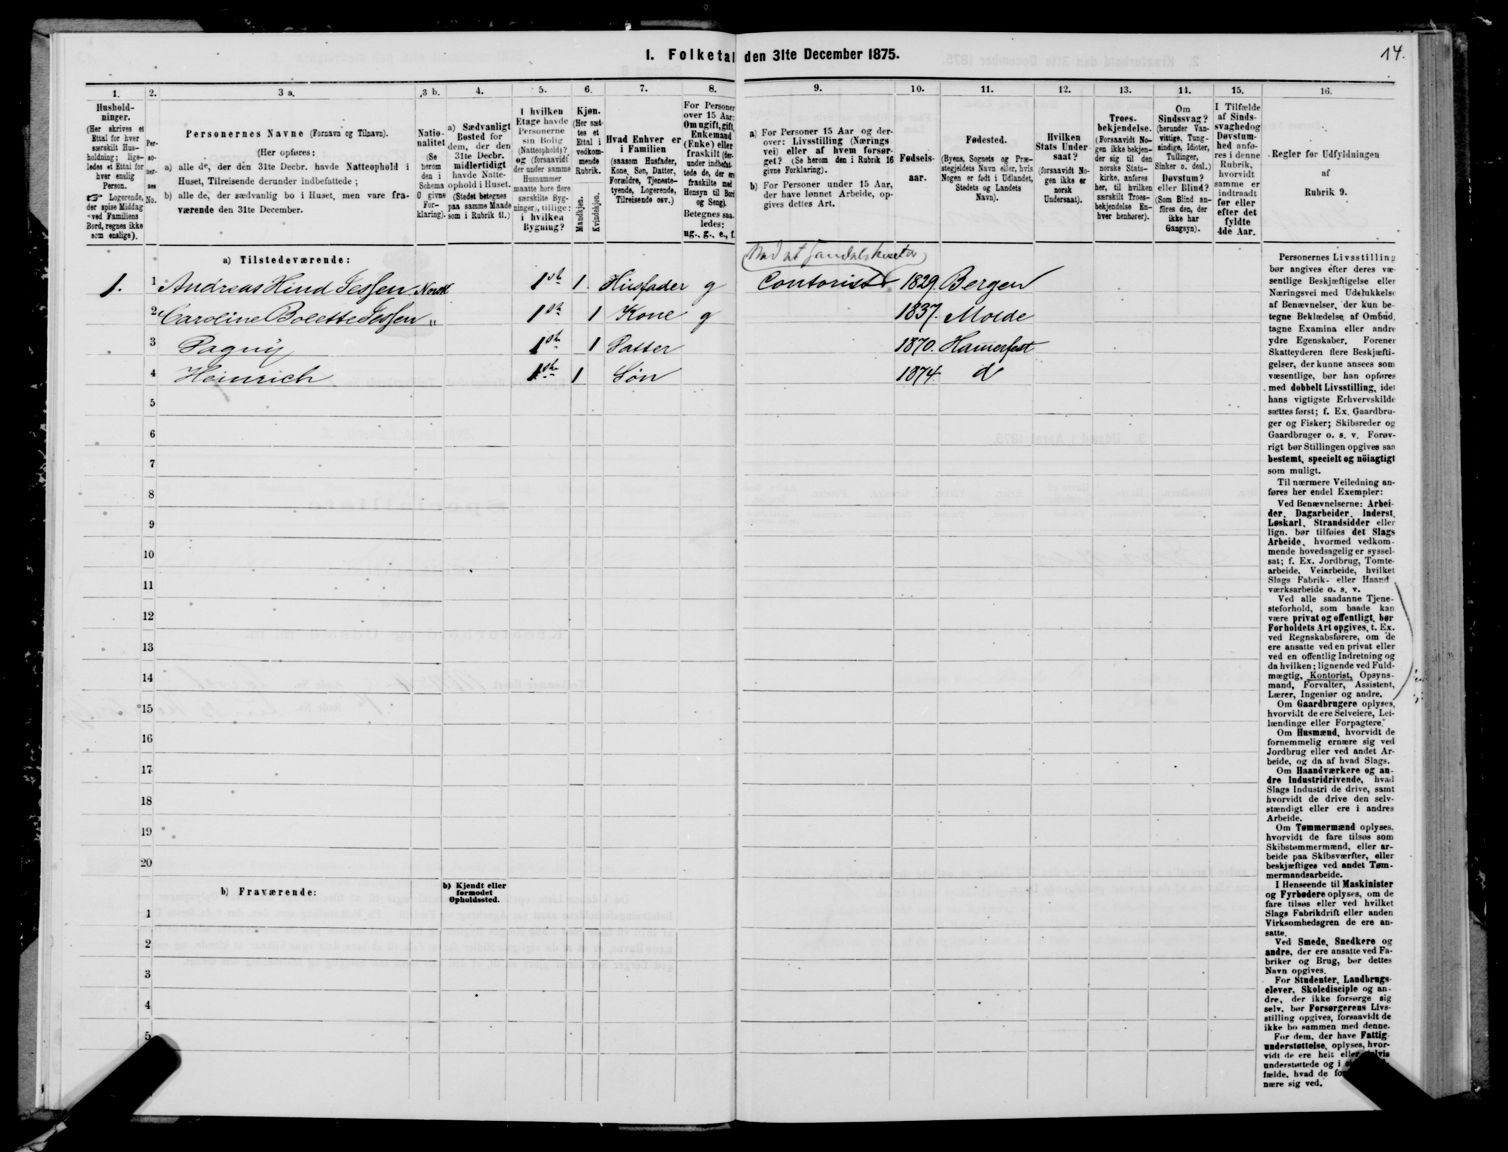 1. Folketal den 31te December 1875.
14.
1.
Hushold-
ninger.
(Her skrives et
Ettal for hver
særskilt Hus-
holdning; lige-
ledes et Ettal for
hver enslig
Person.
☞ Logerende,
der spise Middag
ved Familiens
Bord, regnes ikke
som enslige).
2.
Per-
so-
ner-
nes
No.
3 a.
Personernes Navne (Fornavn og Tilnavn).
(Her opføres:
a) alle de, der den 31te Decbr. havde Natteophold i
Huset, Tilreisende derunder indbefattede;
b) alle de, der sædvanlig bo i Huset, men vare fra-
værende den 31te December.
3 b.
Natio-
nalitet
(Se
herom
den i
Schema
6 givne
For-
klaring).
4.
a) Sædvanligt
Bosted for
dem, der den
31te Decbr.
midlertidigt
havde Natte-
ophold i Huset.
(Stedet betegnes
paa samme Maade
som i Rubrik 11.)
5.
I hvilken
Etage havde
Personerne
sin Bolig
(Natteophold)?
og (forsaavidt
der under samme
Husnummer
maatte høre flere
særskilte Byg-
ninger), tillige:
i hvilken
Bygning?
6.
Kjøn.
(Her sæt-
tes et
Ettal i
vedkom-
mende
Rubrik.
Mandkjøn.
Kvindekjøn.
7.
Hvad Enhver er
i Familien
(saasom Husfader,
Kone, Søn, Datter,
Forældre, Tjeneste-
tyende, Logerende,
Tilreisende osv.)
8.
For Personer
over 15 Aar:
Om ugift, gift,
Enkemand
(Enke) eller
fraskilt (der-
under indbefat-
tede de, der ere
fraskilte med
Hensyn til Bord
og Seng).
Betegnes saa-
ledes:
ug., g., e., f.
9.
a) For Personer 15 Aar og der-
over: Livsstilling (Nærings-
vei) eller af hvem forsør-
get? (Se herom den i Rubrik 16
givne Forklaring).
b) For Personer under 15 Aar,
der have lønnet Arbeide, op-
gives dettes Art.
10.
Fødsels-
aar.
11.
Fødested.
(Byens, Sognets og Præ-
stegjeldets Navn eller, hvis
Nogen er født i Udlandet,
Stedets og Landets
Navn).
12.
Hvilken
Stats Under-
saat?
(forsaavidt No-
gen ikke er
norsk
Undersaat).
13.
Troes-
bekjendelse.
(Forsaavidt No-
gen ikke bekjen-
der sig til den
norske Stats-
kirke, anføres
her, til hvilken
særskilt Troes-
bekjendelse En-
hver henhører).
14.
Om
Sindssvag?
(herunder Van-
vittige, Tung-
sindige, Idioter,
Tullinger,
Sinker o. desl.)
Døvstum?
eller Blind?
(Som Blind an-
føres den, der
ikke har
Gangsyn).
15.
I Tilfælde
af Sinds-
svaghed og
Døvstum-
hed anfø-
res i denne
Rubrik,
hvorvidt
samme er
indtraadt
før eller
efter det
fyldte
4de Aar.
16.
Regler for Udfyldningen
af
Rubrik 9.
a) Tilstedeværende:
1. 1 Andreas Hind Jessen Norsk 1st 1 Husfader g Contorist 1829. Bergen
2 Caroline Bolette Jessen „ 1st 1 Kone g 1837. Molde
3 Dagny 1st 1 Datter 1870. Hamerfest
4 Heinrich 1st 1 Søn 1874. d
5
6
7
8
9
10
11
12
13
14
15
16
17
18
19
20
b) Fraværende:
b) Kjendt eller
formodet
Opholdssted.
1
2
3
4
5
Personernes Livsstilling
bør angives efter deres væ-
sentlige Beskjæftigelse eller
Næringsvei med Udelukkelse
af Benævnelser, der kun be-
tegne Beklædelse af Ombud,
tagne Examina eller andre
ydre Egenskaber. Forener
Skatteyderen flere Beskjæfti-
gelser, der kunne ansees som
væsentlige, bør han opføres
med dobbelt Livsstilling, idet
hans vigtigste Erhvervskilde
sættes først; f. Ex. Gaardbru-
ger og Fisker; Skibsreder og
Gaardbruger o. s. v. Forøv-
rigt bør Stillingen opgives saa
bestemt, specielt og nöiagtigt
som muligt.
Til nærmere Veiledning an-
føres her endel Exempler:
Ved Benævnelserne: Arbei-
der, Dagarbeider, Inderst,
Løskarl, Strandsidder eller
lign. bør tilføies det Slags
Arbeide, hvormed vedkom-
mende hovedsagelig er syssel-
sat; f. Ex. Jordbrug, Tomte-
arbeide, Veiarbeide, hvilket
Slags Fabrik- eller Haand-
værksarbeide o. s. v.
Ved alle saadanne Tjene-
steforhold, som baade kan
være privat og offentligt, bør
Forholdets Art opgives, t. Ex.
ved Regnskabsførere, om de
ere ansatte ved en privat eller
ved en offentlig Indretning og
da hvilken; lignende ved Fuld-
mægtig, Kontorist, Opsyns-
mand, Forvalter, Assistent,
Lærer, Ingeniør og andre.
Om Gaardbrugere oplyses,
hvorvidt de ere Selveiere, Lei-
lændinge eller Forpagtere.
Om Husmænd, hvorvidt de
fornemmelig ernære sig ved
Jordbrug eller ved andet Ar-
beide, og da af hvad Slags.
Om Haandværkere og an-
dre Industridrivende, hvad
Slags Industri de drive, samt
hvorvidt de drive den selv-
stændigt eller ere i andres
Arbeide.
Om Tømmermænd oplyses,
hvorvidt de fare tilsøs som
Skibstømmermænd, eller ar-
beide paa Skibsværfter, eller
beskjæftiges ved andet Tøm-
mermandsarbeide.
I Henseende til Maskinister
og Fyrbødere oplyses, om de
fare tilsøs eller ved hvilket
Slags Fabrikdrift eller anden
Virksomhedsgren de ere an-
satte.
Ved Smede, Snedkere og
andre, der ere ansatte ved Fa-
briker og Brug, bør dettes
Navn opgives.
For Studenter, Landbrugs-
elever, Skoledisciple og an-
dre, der ikke forsørge sig
selv, bør Forsørgerens Livs-
stilling opgives, forsaavidt de
ikke bo sammen med denne.
For dem, der have Fattig-
understøttelse, oplyses, hvor-
vidt de ere helt eller delvis
understøttede og i
fælde, hvad de
nære sig ved.